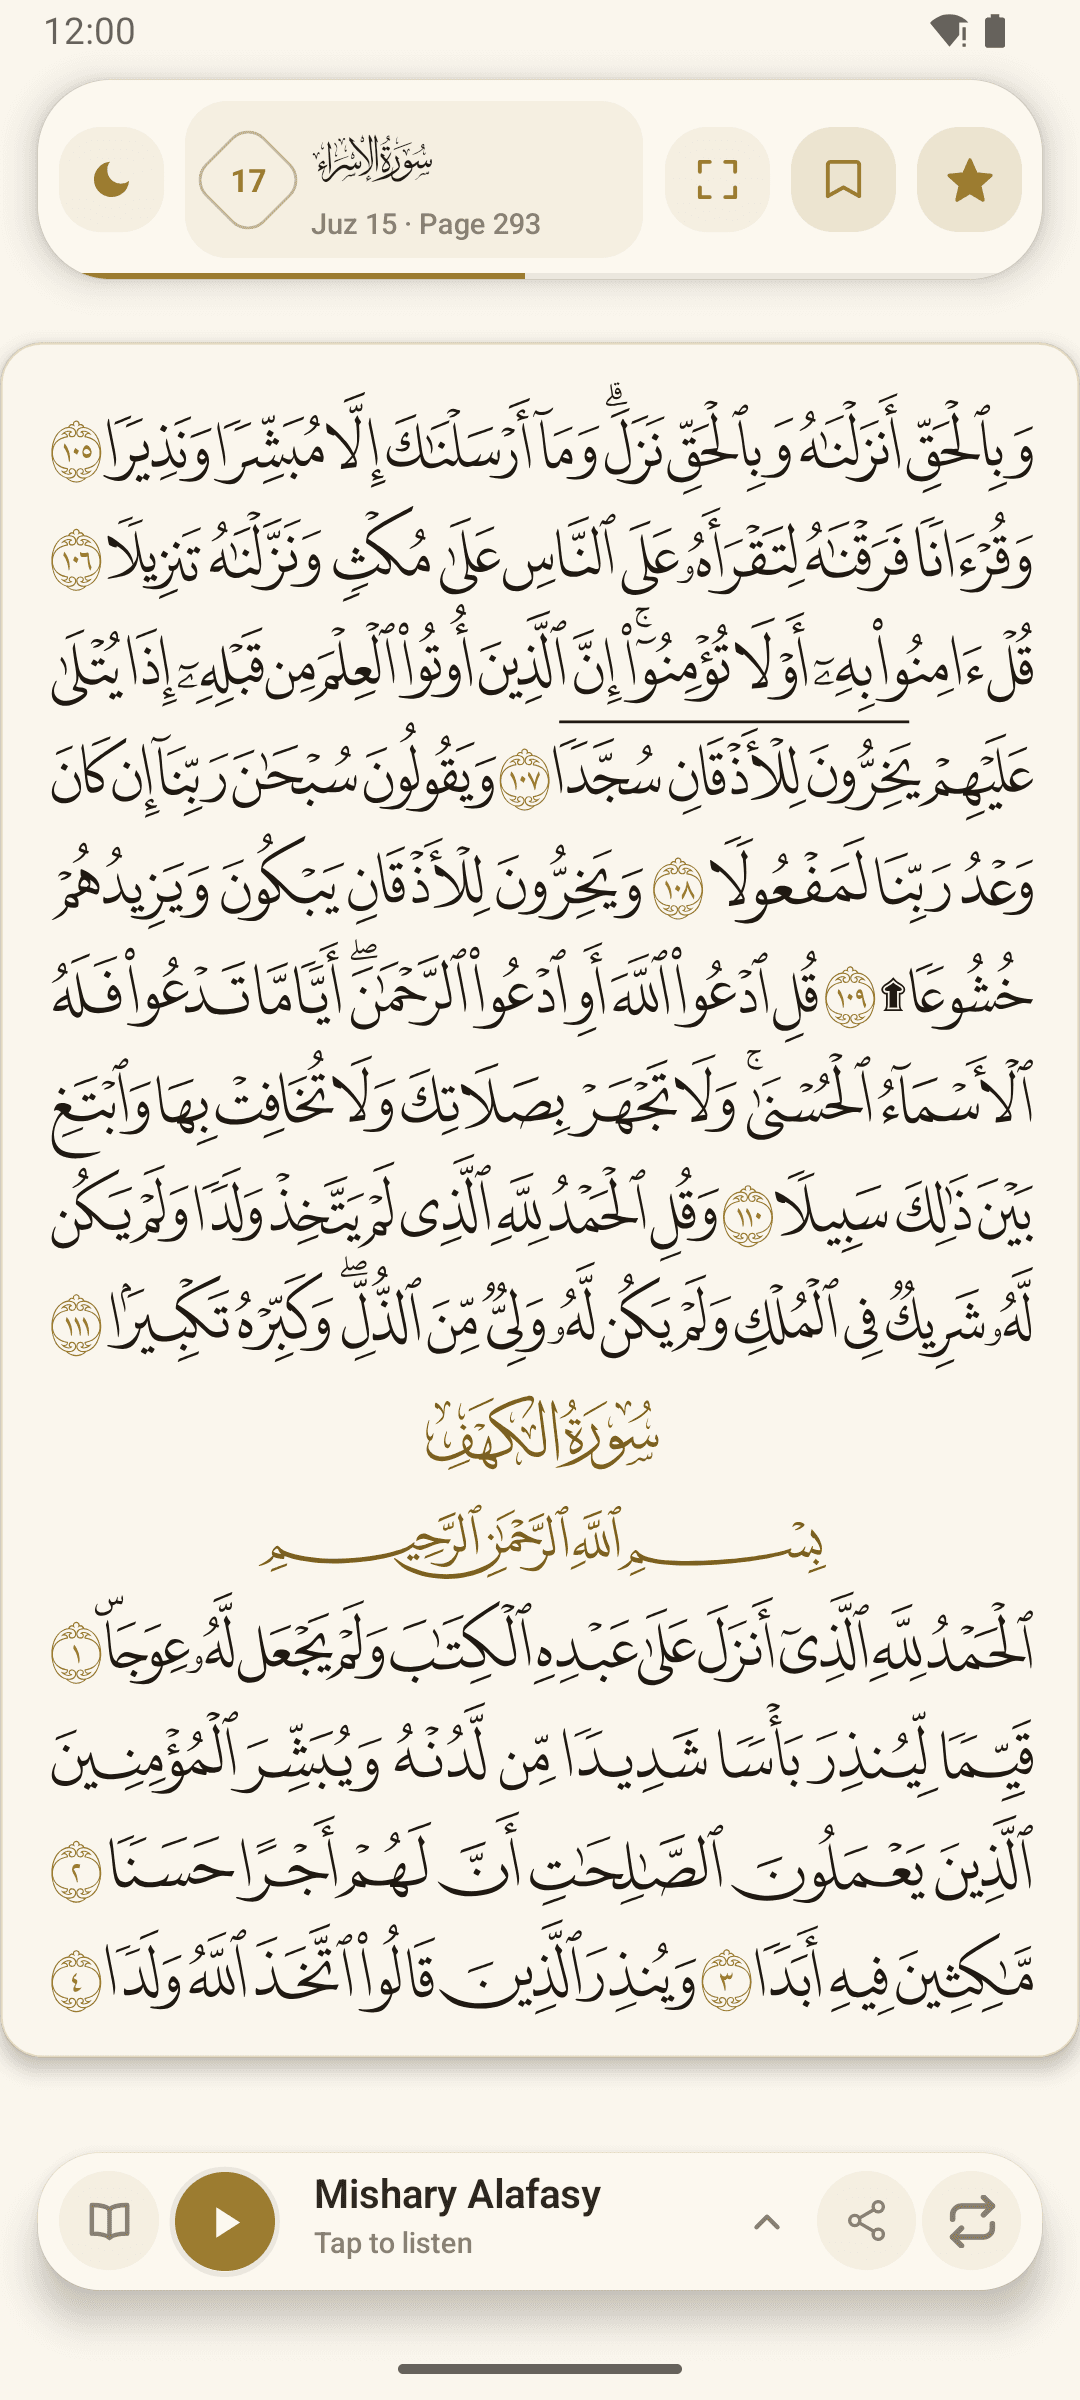 12:00
17
سُورَةُ الإِسْرَاء
Juz 15 · Page 293
وَبِٱلْحَقِّ أَنزَلْنَٰهُ وَبِٱلْحَقِّ نَزَلَ ۗ وَمَآ أَرْسَلْنَٰكَ إِلَّا مُبَشِّرًا وَنَذِيرًا ١٠٥
وَقُرْءَانًا فَرَقْنَٰهُ لِتَقْرَأَهُۥ عَلَى ٱلنَّاسِ عَلَىٰ مُكْثٍ وَنَزَّلْنَٰهُ تَنزِيلًا ١٠٦
قُلْ ءَامِنُوا۟ بِهِۦٓ أَوْ لَا تُؤْمِنُوٓا۟ ۚ إِنَّ ٱلَّذِينَ أُوتُوا۟ ٱلْعِلْمَ مِن قَبْلِهِۦٓ إِذَا يُتْلَىٰ
عَلَيْهِمْ يَخِرُّونَ لِلْأَذْقَانِ سُجَّدًا ١٠٧ وَيَقُولُونَ سُبْحَٰنَ رَبِّنَآ إِن كَانَ
وَعْدُ رَبِّنَا لَمَفْعُولًا ١٠٨ وَيَخِرُّونَ لِلْأَذْقَانِ يَبْكُونَ وَيَزِيدُهُمْ
خُشُوعًا ۩ ١٠٩ قُلِ ٱدْعُوا۟ ٱللَّهَ أَوِ ٱدْعُوا۟ ٱلرَّحْمَٰنَ ۖ أَيًّا مَّا تَدْعُوا۟ فَلَهُ
ٱلْأَسْمَآءُ ٱلْحُسْنَىٰ ۚ وَلَا تَجْهَرْ بِصَلَاتِكَ وَلَا تُخَافِتْ بِهَا وَٱبْتَغِ
بَيْنَ ذَٰلِكَ سَبِيلًا ١١٠ وَقُلِ ٱلْحَمْدُ لِلَّهِ ٱلَّذِى لَمْ يَتَّخِذْ وَلَدًا وَلَمْ يَكُن
لَّهُۥ شَرِيكٌ فِى ٱلْمُلْكِ وَلَمْ يَكُن لَّهُۥ وَلِىٌّ مِّنَ ٱلذُّلِّ ۖ وَكَبِّرْهُ تَكْبِيرًۢا ١١١
سُورَةُ الكَهْفِ
بِسْمِ ٱللَّهِ ٱلرَّحْمَٰنِ ٱلرَّحِيمِ
ٱلْحَمْدُ لِلَّهِ ٱلَّذِىٓ أَنزَلَ عَلَىٰ عَبْدِهِ ٱلْكِتَٰبَ وَلَمْ يَجْعَل لَّهُۥ عِوَجَاۜ ١
قَيِّمًا لِّيُنذِرَ بَأْسًا شَدِيدًا مِّن لَّدُنْهُ وَيُبَشِّرَ ٱلْمُؤْمِنِينَ
ٱلَّذِينَ يَعْمَلُونَ ٱلصَّٰلِحَٰتِ أَنَّ لَهُمْ أَجْرًا حَسَنًا ٢
مَّٰكِثِينَ فِيهِ أَبَدًا ٣ وَيُنذِرَ ٱلَّذِينَ قَالُوا۟ ٱتَّخَذَ ٱللَّهُ وَلَدًا ٤
Mishary Alafasy
Tap to listen